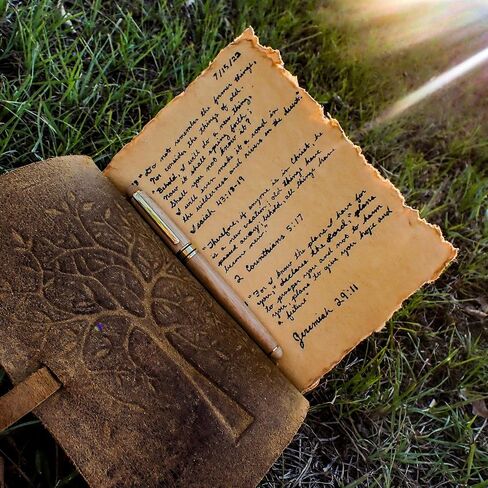 "Do not remember the former things,
Nor consider the things of old.
Behold, I will do a new thing,
Now it shall spring forth;
Shall you not know it?
I will even make a road in
the wilderness and rivers in the desert."
Isaiah 43:18-19
Therefore, if anyone is in Christ, he
is a new creation; old things have
passed away; behold, all things have
become new.
2 Corinthians 5:17
"For I know the plans I have for
you," declares the Lord, "plans
to prosper you and not to harm
you, plans to give you hope and
a future"
Jeremiah 29:11